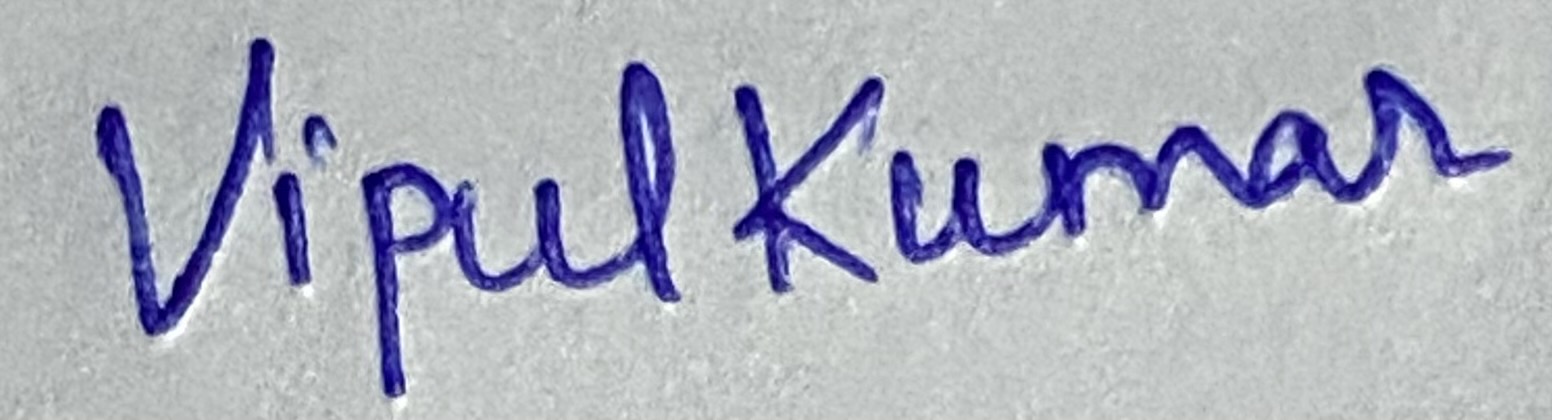 Vipul Kumar